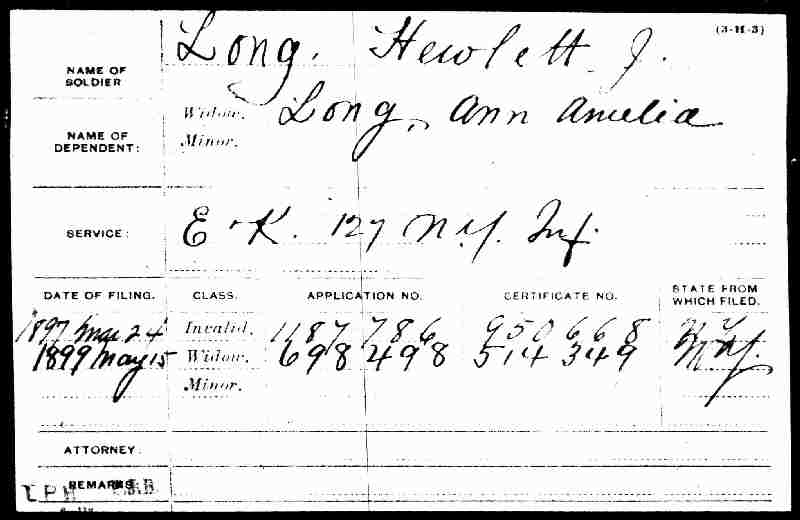 (3-H-3)
NAME OF SOLDIER Long, Hewlett J.
NAME OF DEPENDENT: Widow, Long, Ann Amelia
Minor,
SERVICE: E & K. 127 N.Y. Inf.
DATE OF FILING. CLASS. APPLICATION NO. CERTIFICATE NO. STATE FROM WHICH FILED.
1897 Mar 24 Invalid, 1187 786 950 668 N.Y.
1899 May 15 Widow, 698 498 514 349 N.Y.
Minor,
ATTORNEY:
REMARKS